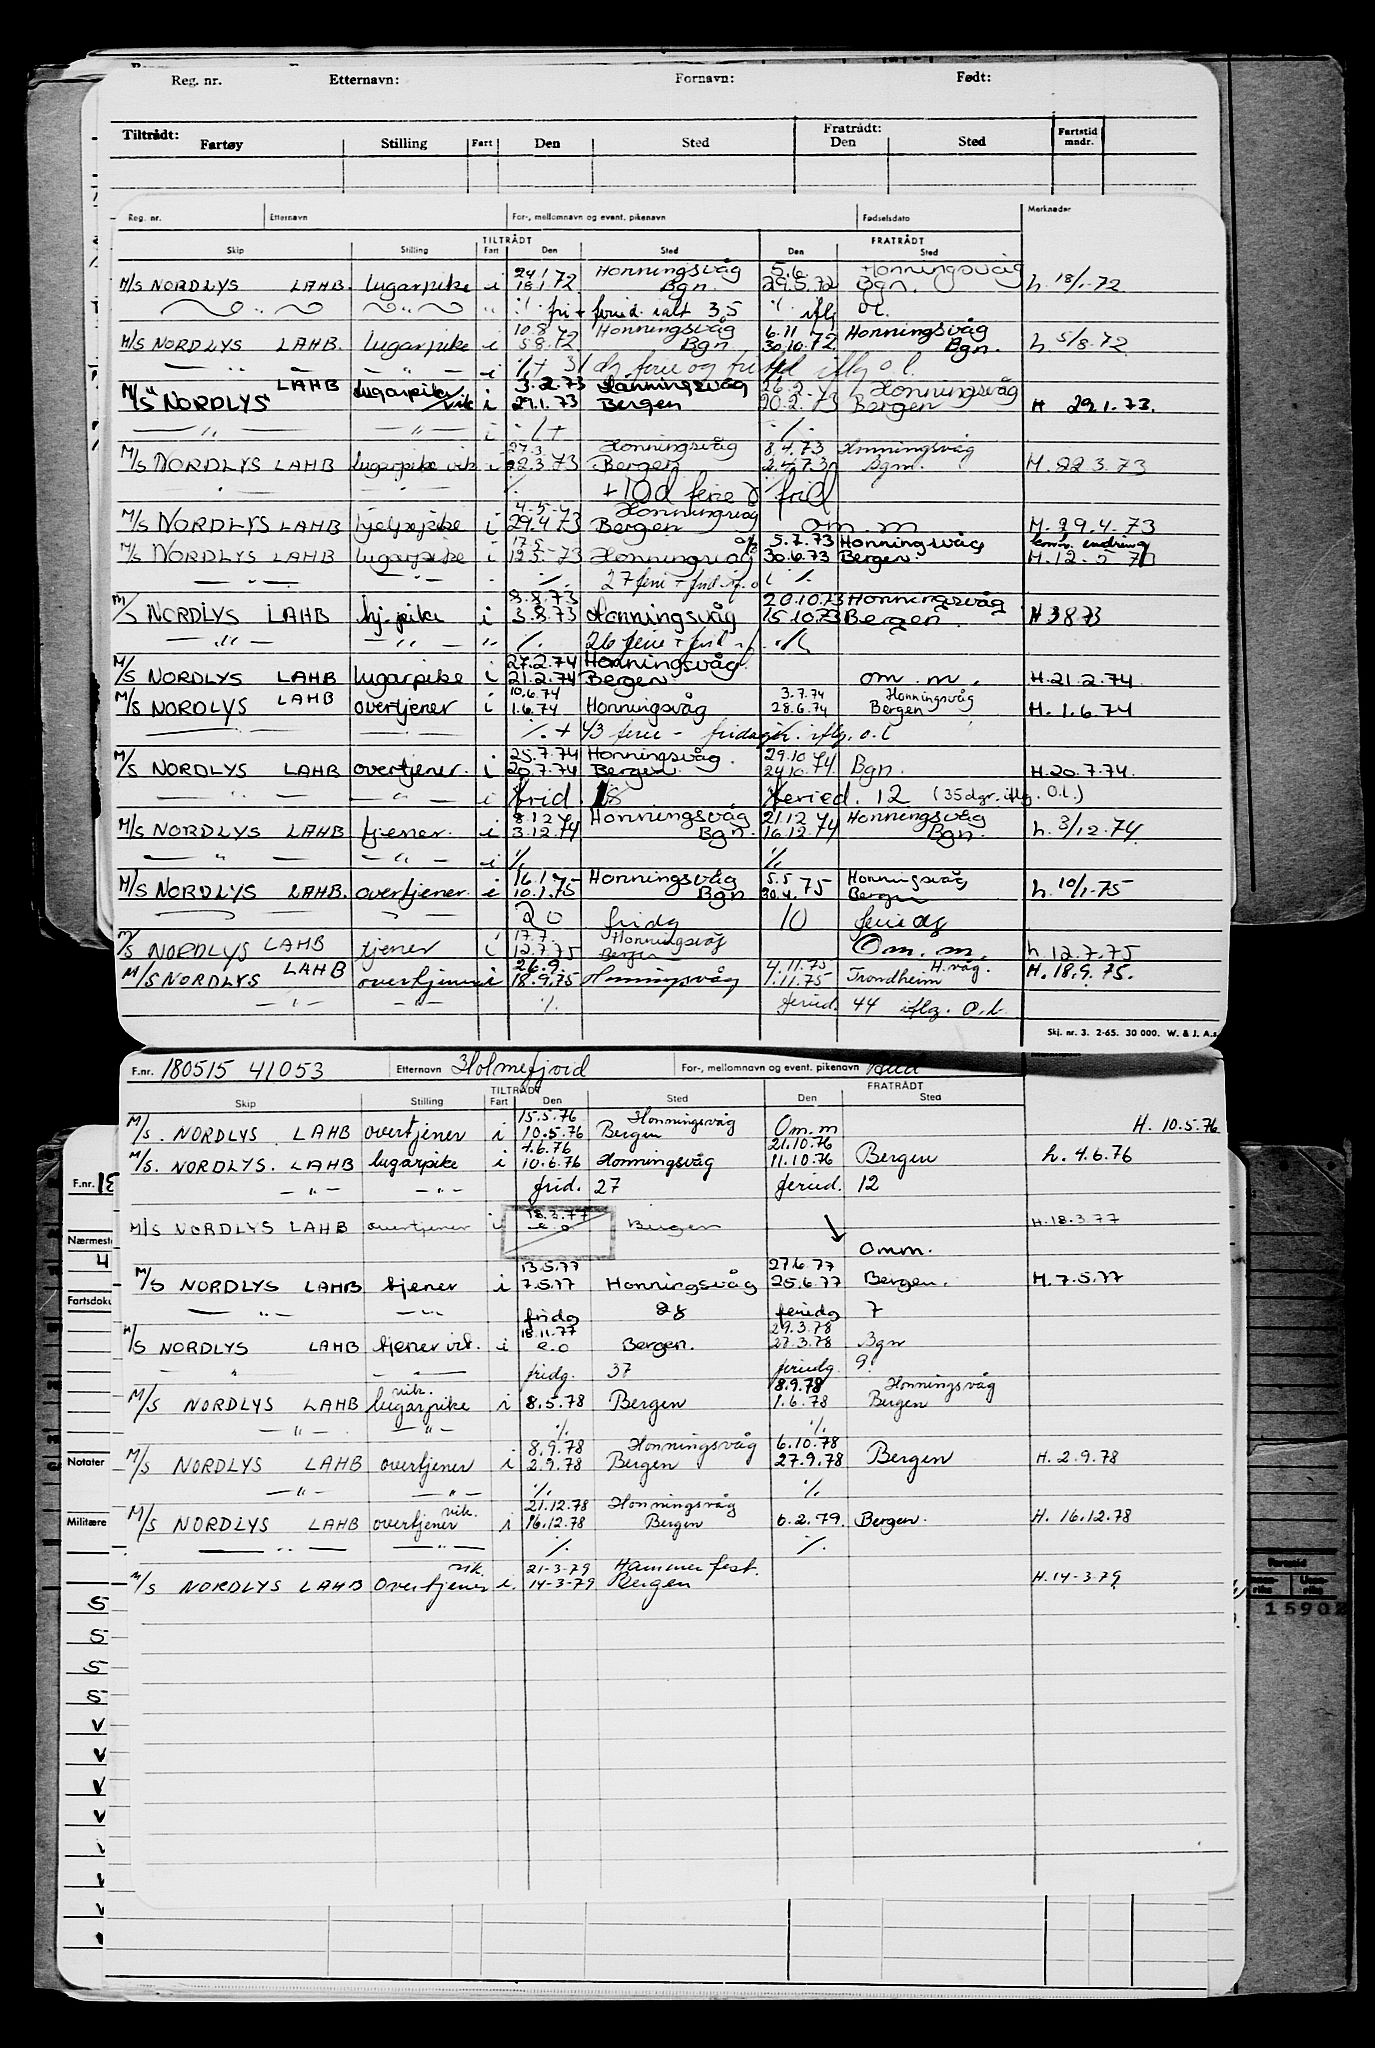 Reg. nr. Etternavn: Fornavn: Født:
Tiltrådt: Fratrådt: Fartstid
Fartøy Stilling Fart Den Sted Den Sted mndr.
Reg. nr. Etternavn For-, mellomnavn og event. pikenavn Fødselsdato Merknader
TILTRÅDT FRATRÅDT
Skip Stilling Fart Den Sted Den Sted
24.1 Honningsvåg 5.6. Honningsvåg
M/S NORDLYS LAHB. lugarpike i 18.1.72 Bgn. 29.5.72 Bgn. h. 18/1-72
" ·/· fri + feried. ialt 35 ·/· iflg o.l.
10.8 Honningsvåg 6.11 Honningsvåg
M/S NORDLYS LAHB. lugarpike i 5.8.72 Bgn 30.10.72 Bgn. h. 5/8.72
— " — — " — i ·/· + 31 dg ferie og frid iflg o.l.
LAHB lugarpike 3.2.73 Honningsvåg 26.2 Honningsvåg
M/S NORDLYS /vik i 29.1.73 Bergen 20.2.73 Bergen H 29.1.73.
— " — — " — i ·/· + ·/·
27.3. Honningsvåg 8.4.73 Honningsvåg
M/S NORDLYS LAHB lugarpike vik. i 22.3.73 Bergen 2.4.73 Bgn. H. 22.3.73
— " — — " — ·/· +10d ferie & frid
4-5- Honningsvåg
M/S NORDLYS LAHB hjelpepike i 29.4.73 Bergen om.m H. 29.4.73
17.5 5.7.73 Honningsvåg endring
M/S NORDLYS LAHB lugarpike i 12.5.73 Honningsvåg 30.6.73 Bergen. H. 12.5.73
— " — ·/· 27 ferie + frid ·/·
8.8.73 20.10.73 Honningsvåg
M/S NORDLYS LAHB hj.pike i 3.8.73 Honningsvåg 15.10.73 Bergen. H 3 8 73
— " — — " — " ·/· 26 ferie + frid ·/·
27.2.74 Honningsvåg.
M/S NORDLYS LAHB lugarpike i 21.2.74 Bergen om.m. H.21.2.74
10.6.74 3.7.74 Honningsvåg
M/S NORDLYS LAHB overtjener i 1.6.74 Honningsvåg 28.6.74 Bergen H. 1.6.74
— " — ·/· + 43 ferie - fridager. iflg. o.l
25.7.74 Honningsvåg. 29.10
M/S NORDLYS LAHB overtjener. i 20.7.74 Bergen 24.10.74 Bgn. H.20.7.74.
— " — — " — i frid. 18 feried. 12 (35dgr. iflg. o.l.)
8.12 Honningsvåg 21.12 Honningsvåg
M/S NORDLYS LAHB tjener. i 3.12.74 Bgn. 16.12.74 Bgn. h. 3/12.74
— " — — " — i ·/· ·/·
16.1 Honningsvåg 5.5 Honningsvåg
M/S NORDLYS LAHB. overtjener. i 10.1.75 Bgn 30.4.75 Bergen h. 10/1-75
20 fridg 10 feriedg
17.7. Honningsvåg
M/S NORDLYS LAHB tjener i 12.7.75 Bergen Om.m. h 12.7.75
26.9. 4.11.75 H.våg.
M/S NORDLYS LAHB overtjener i 18.9.75 Honningsvåg 1.11.75 Trondheim H. 18.9.75.
— " — — " — ·/· feried. 44 iflg. o.l.
Skj. nr. 3. 2-65. 30 000. W. & J. A.s
F.nr. 180515 41053 Etternavn Holmefjord For-, mellomnavn og event. pikenavn
TILTRÅDT FRATRÅDT
Skip Stilling Fart Den Sted Den Sted
15.5.76 Honningsvåg
M/S. NORDLYS LAHB overtjener i 10.5.76 Bergen Om.m H. 10.5.76
4.6.76 21.10.76
M/S. NORDLYS. LAHB lugarpike i 10.6.76 Honningsvåg 11.10.76 Bergen h. 4.6.76
— " — — " — frid. 27 feried. 12
18.3.77
M/S NORDLYS LAHB overtjener i e.o Bergen H.18.3.77
Omm.
13.5.77 27.6.77
M/S NORDLYS LAHB tjener i 7.5.77 Honningsvåg 25.6.77 Bergen. H.7.5.77
— " — — " — fridg 28 feriedg 7
18.11.77 29.3.78
M/S NORDLYS LAHB tjener vik. i e.o Bergen. 27.3.78 Bgn
" — " — fridg. 37 feriedg. 9.
vik. 8.9.78 Honningsvåg
M/S NORDLYS LAHB lugarpike i 8.5.78 Bergen 1.6.78 Bergen
— " — — " — ·/· ·/·
8.9.78 Honningsvåg 6.10.78
M/S NORDLYS LAHB overtjener i 2.9.78 Bergen 27.9.78 Bergen H. 2.9.78
— " — — " — ·/· ·/·
vik. 21.12.78 Honningsvåg
M/S NORDLYS LAHB overtjener i 16.12.78 Bergen 6.2.79. Bergen. H. 16.12.78
— " — — " — ·/· ·/·
vik. 21-3-79 Hammerfest.
M/S NORDLYS LAHB overtjener i. 14-3-79 Bergen H.14-3-79
F.nr.
Nærmeste
4
Fartsdoku
Notater
Militære
S
S
S
S
V
V
V
V
Fartstid
15902